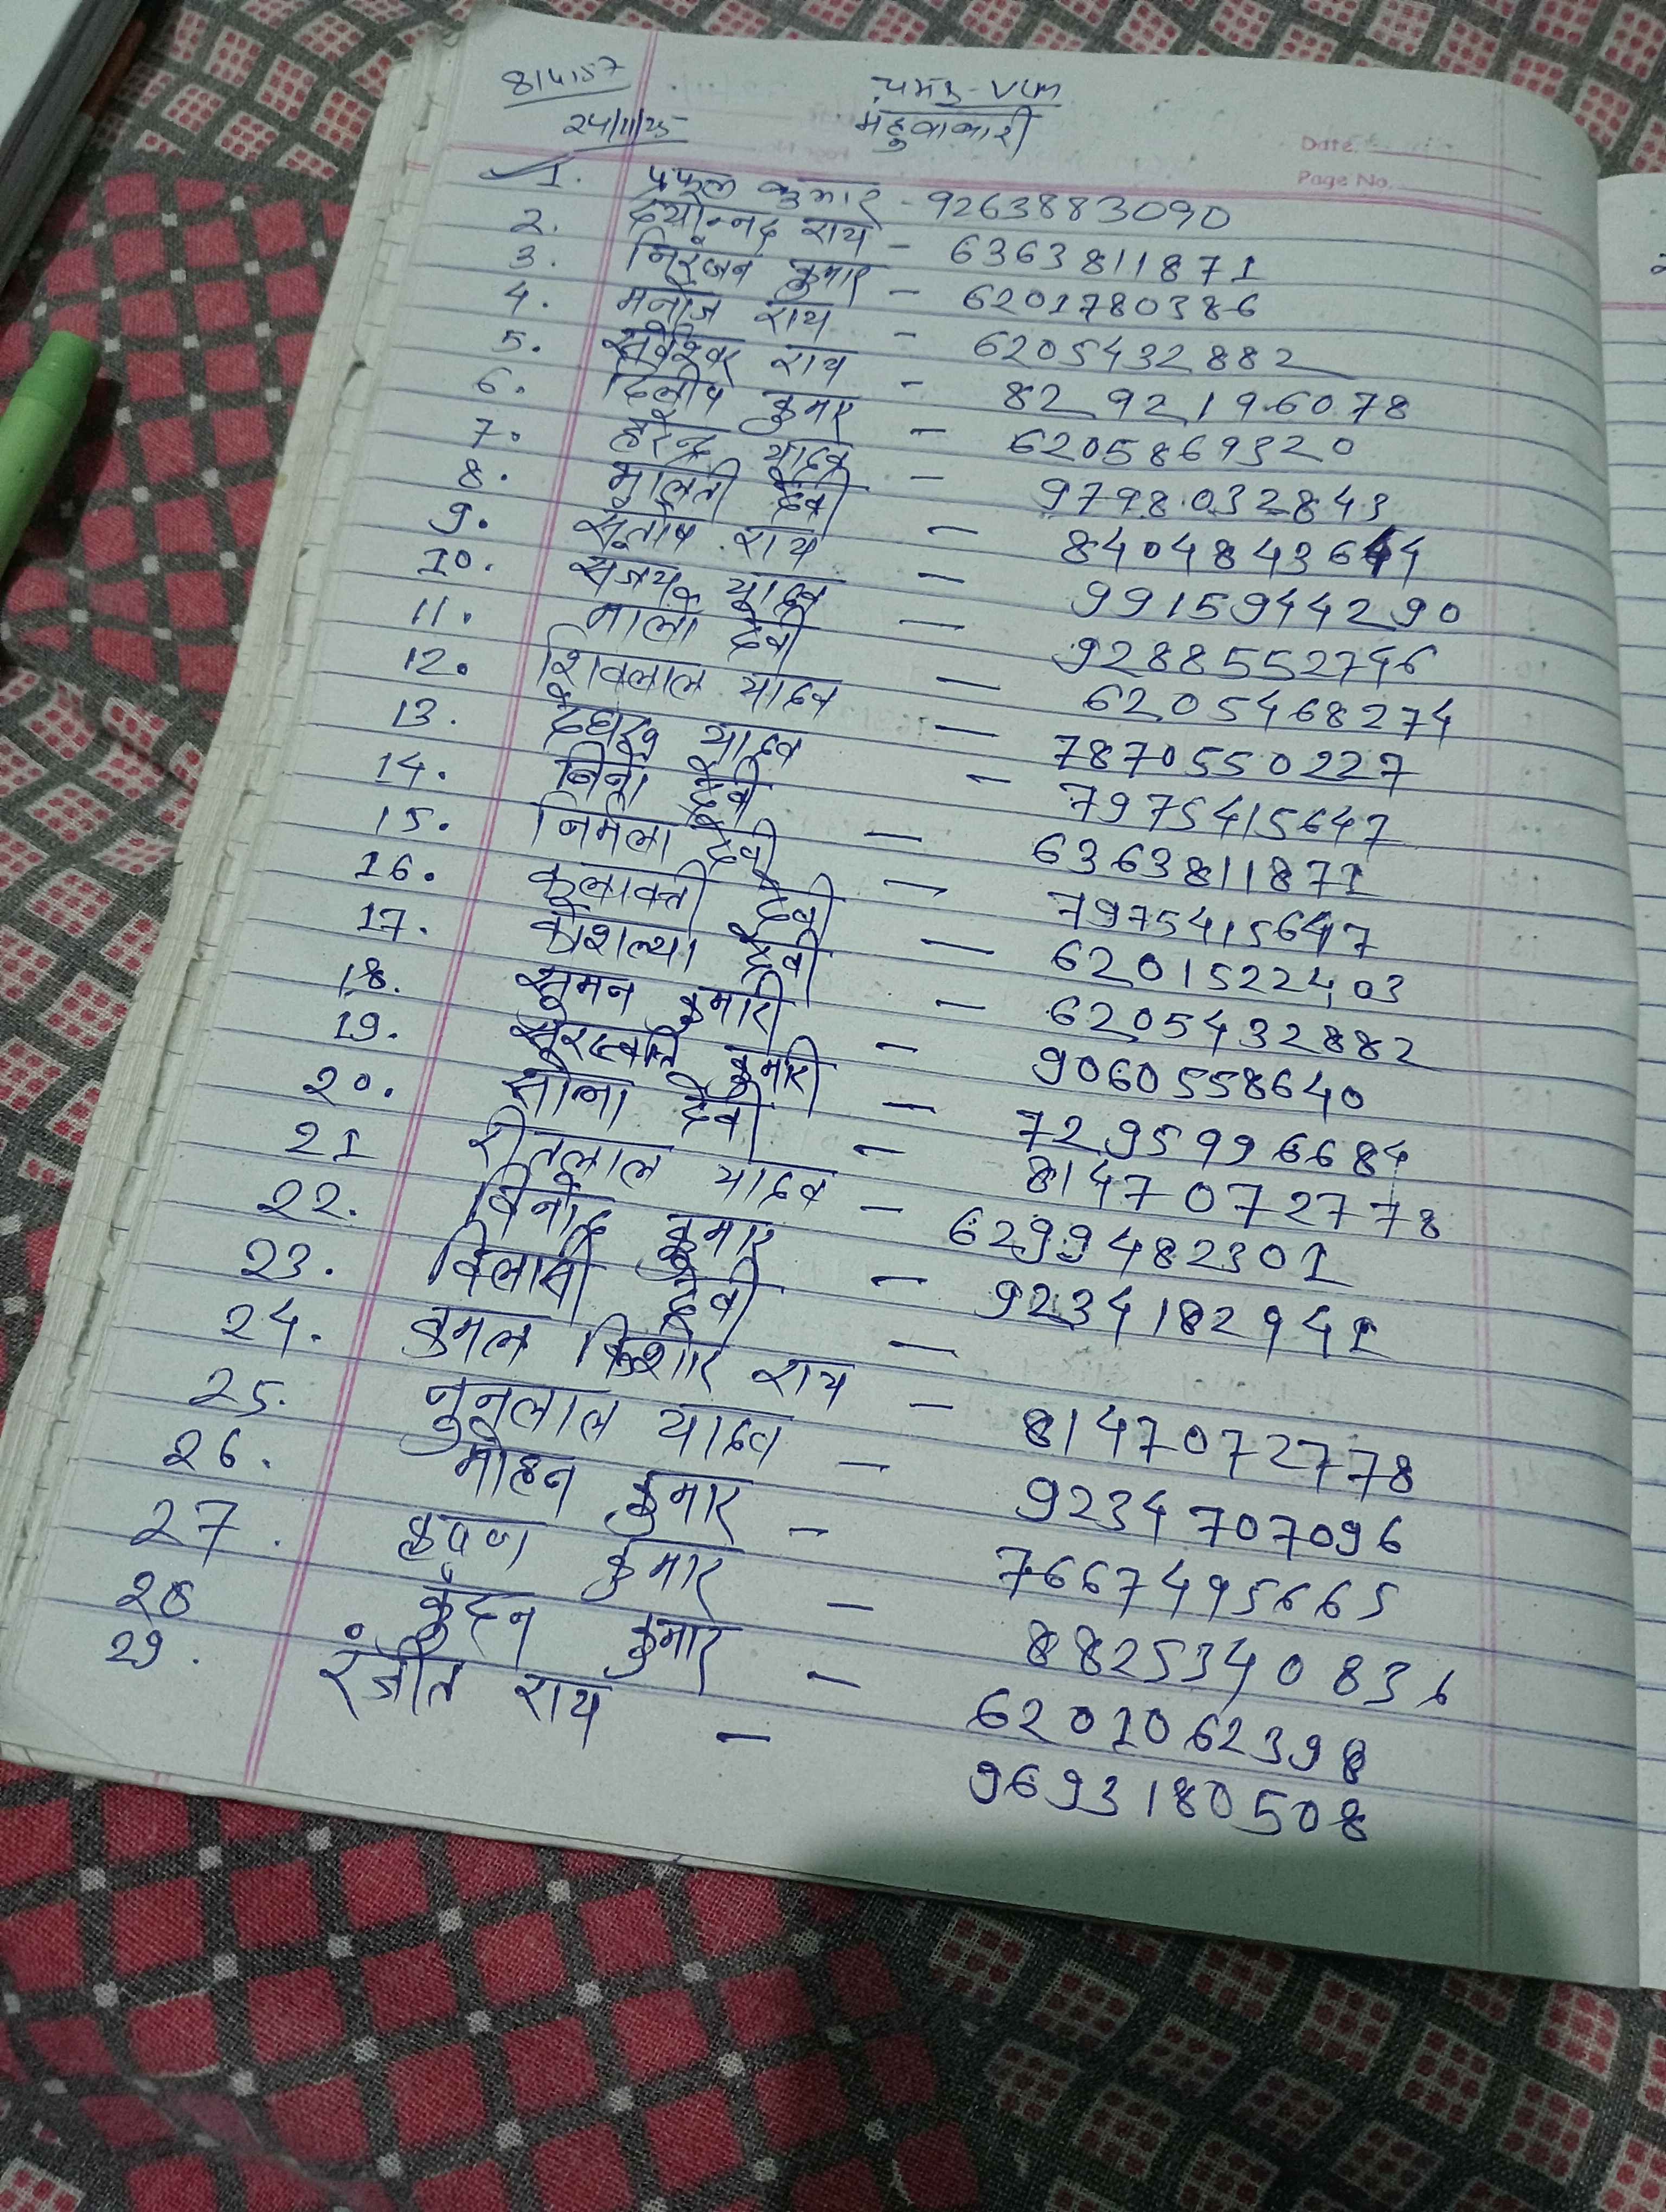 814157
24/11/25
चमरु-VLM
महुवाकारी
Date:
Page No.
1. प्रफुल कुमार - 9263883090
2. दयोन्नद राय - 6363811871
3. निरंजन कुमार - 6201780386
4. मनोज राय - 6205432882
5. सर्वेश्वर राय - 8292196078
6. दिलीप कुमार - 6205869320
7. हरेन्द्र यादव - 9798032843
8. मालिती देवी - 8404843644
9. सतोष राय - 9915944290
10. संजय यादव - 9288552746
11. मालो देवी - 6205468274
12. शिवलाल यादव - 7870550227
13. देघरु यादव - 7975415647
14. बिना देवी - 6363811871
15. निर्मला देवी - 7975415647
16. कलावती देवी - 6201522403
17. कौशल्या देवी - 6205432882
18. सुमन कुमारी - 9060558640
19. सुरस्वति कुमारी - 7295996684
20. सोना देवी - 8147072778
21 रीतलाल यादव - 6299482301
22. बिनोद कुमार - 9234182941
23. विलासी देवी -
24. कमल किशोर राय - 8147072778
25. नुनुलाल यादव - 9234707096
26. मोहन कुमार - 7667495665
27. कुमार - 8825340836
28 कुंदन कुमार - 6201062398
29. रंजीत राय - 9693180508